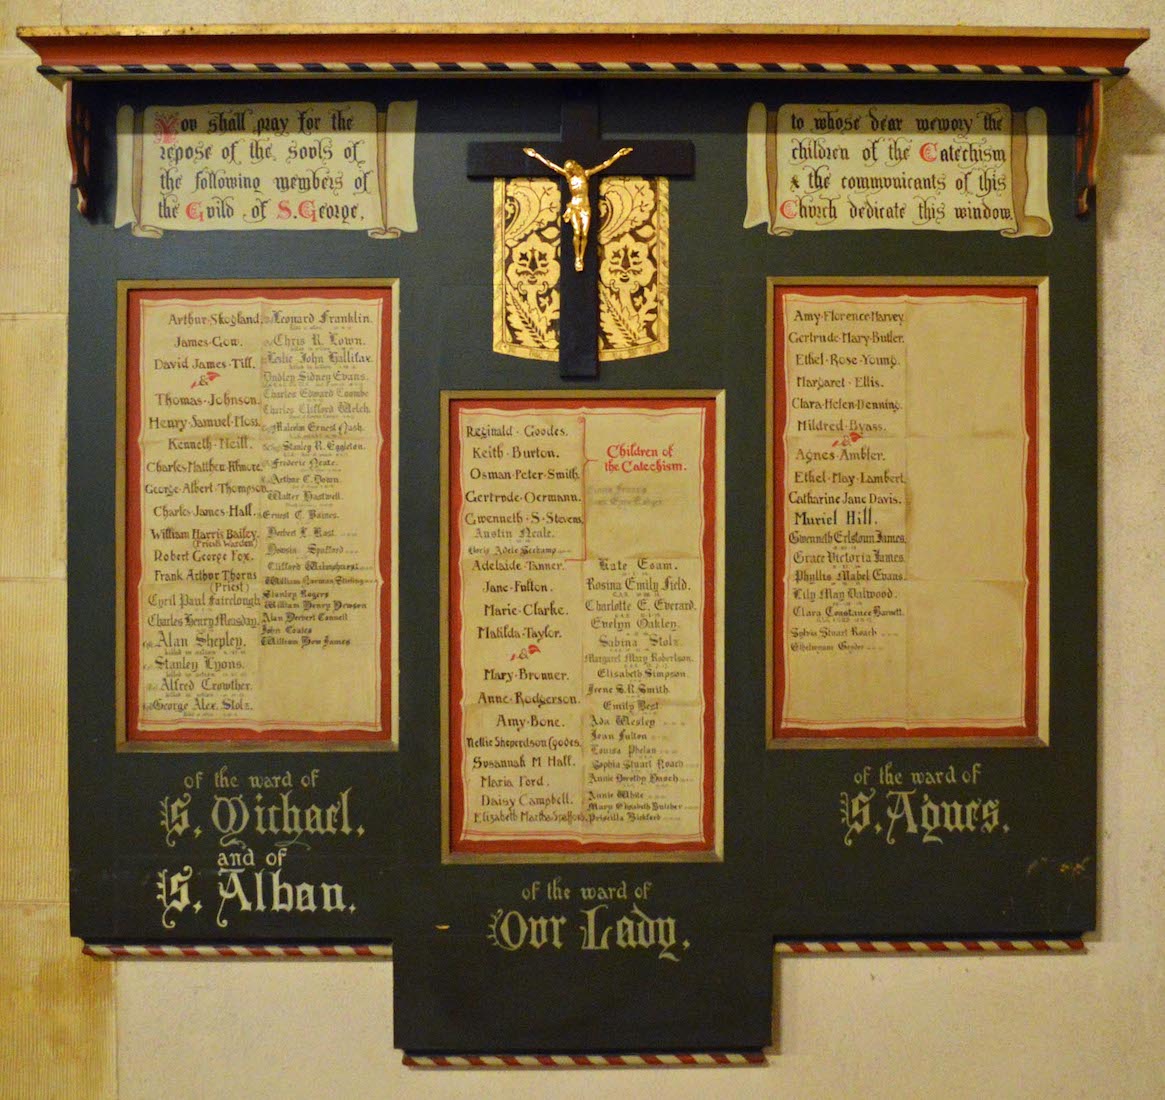 You shall pray for the
repose of the souls of
the following members of
the Guild of S. George,
to whose dear memory the
children of the Catechism
& the communicants of this
Church dedicate this window.
Arthur · Skogland.
James · Gow.
David James · Till.
&
Thomas · Johnson.
Henry · Samuel · Moss.
Kenneth · Neill.
Charles Matthew Filmore.
George · Albert · Thompson.
Charles James · Hall.
William Harris Bailey.
(Priests Warden)
Robert George Fox.
Frank Arthur Thorns
(Priest)
Cyril Paul Fairclough
Charles Henry Mensday.
Alan Shepley.
killed in action
Stanley Lyons.
killed in action
Alfred Crowther.
killed in action
George Alex. Stolz.
Leonard Franklin.
Chris R. Lown.
killed in action
Leslie John Hallifax.
killed in action
Dudley Sidney Evans.
Charles Edward Coombe
Charles Clifford Welch.
Malcolm Ernest Nash.
Stanley R. Eggleton.
Frederic Neate.
Arthur C. Down.
Walter Hastwell.
Ernest C. Baines.
Herbert L. Rost.
Dennis Spafford
Clifford Walmhurst
William Norman Stirling
Stanley Rogers
William Henry Dewson
Alan Herbert Connell
John Coates
William Dew James
of the ward of
S. Michael.
and of
S. Alban.
Reginald · Goodes.
Keith · Burton.
Osman · Peter · Smith.
Gertrude · Oermann.
Gwenneth · S · Stevens.
Austin Neale.
Doris Adele Seekamp
Children of
the Catechism.
Adelaide · Tanner.
Jane · Fulton.
Marie · Clarke.
Matilda · Taylor.
&
Mary · Bronner.
Anne · Rodgerson.
Amy · Bone.
Nellie Sheperdson Goodes.
Susannah M Hall.
Maria Ford.
Daisy Campbell.
Elizabeth Martha Spafford.
Kate Eoam.
Rosina Emily Field.
Charlotte E. Everard.
Evelyn Oakley.
Sabina Stolz.
Margaret Mary Robertson.
Elisabeth Simpson.
Irene S. R. Smith.
Emily Best
Ada Wesley
Jean Fulton
Louisa Phelan
Sophia Stuart Roach
Annie Dorothy Roach
Annie White
Mary Elizabeth Butcher
Priscilla Bickford
of the ward of
Our Lady.
Amy · Florence · Harvey.
Gertrude · Mary · Butler.
Ethel · Rose · Young.
Margaret · Ellis.
Clara · Helen · Denning.
Mildred · Byass.
&
Agnes · Ambler.
Ethel · May · Lambert.
Catharine Jane Davis.
Muriel Hill.
Gwenneth Erlstoun James.
Grace Victoria James.
Phyllis Mabel Evans.
Lily May Dalwood.
Clara Constance Barnett.
Sylvia Stuart Roach
of the ward of
S. Agnes.